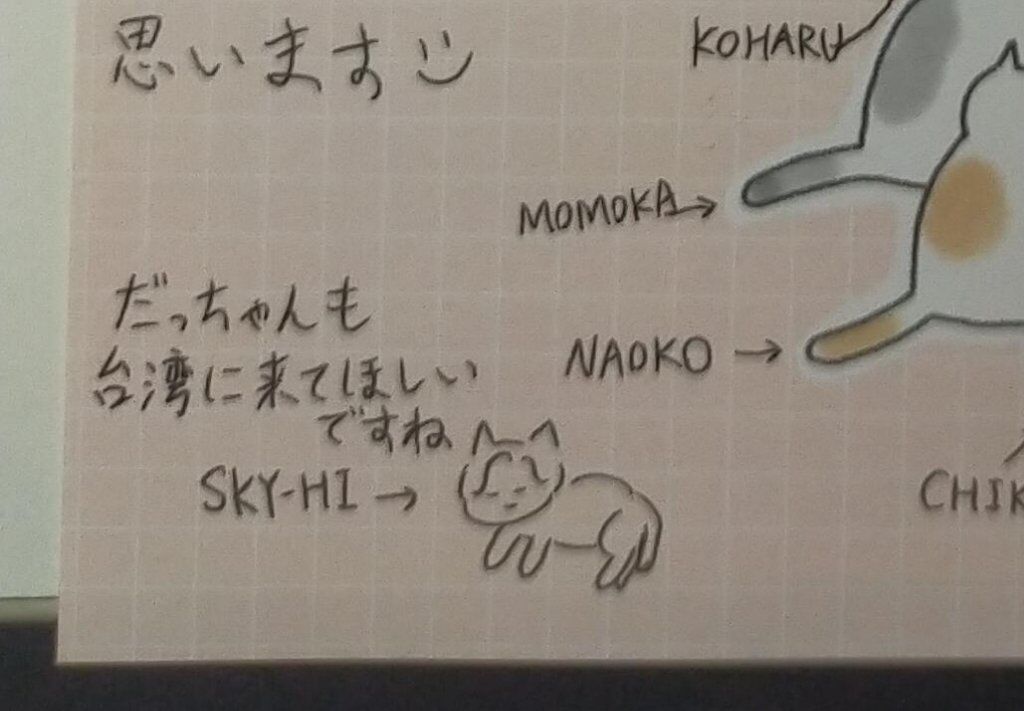 思いますツ
KOHARU
MOMOKA→
だっちゃんも
台湾に来てほしい
ですね
NAOKO→
SKY-HI→
CHIK